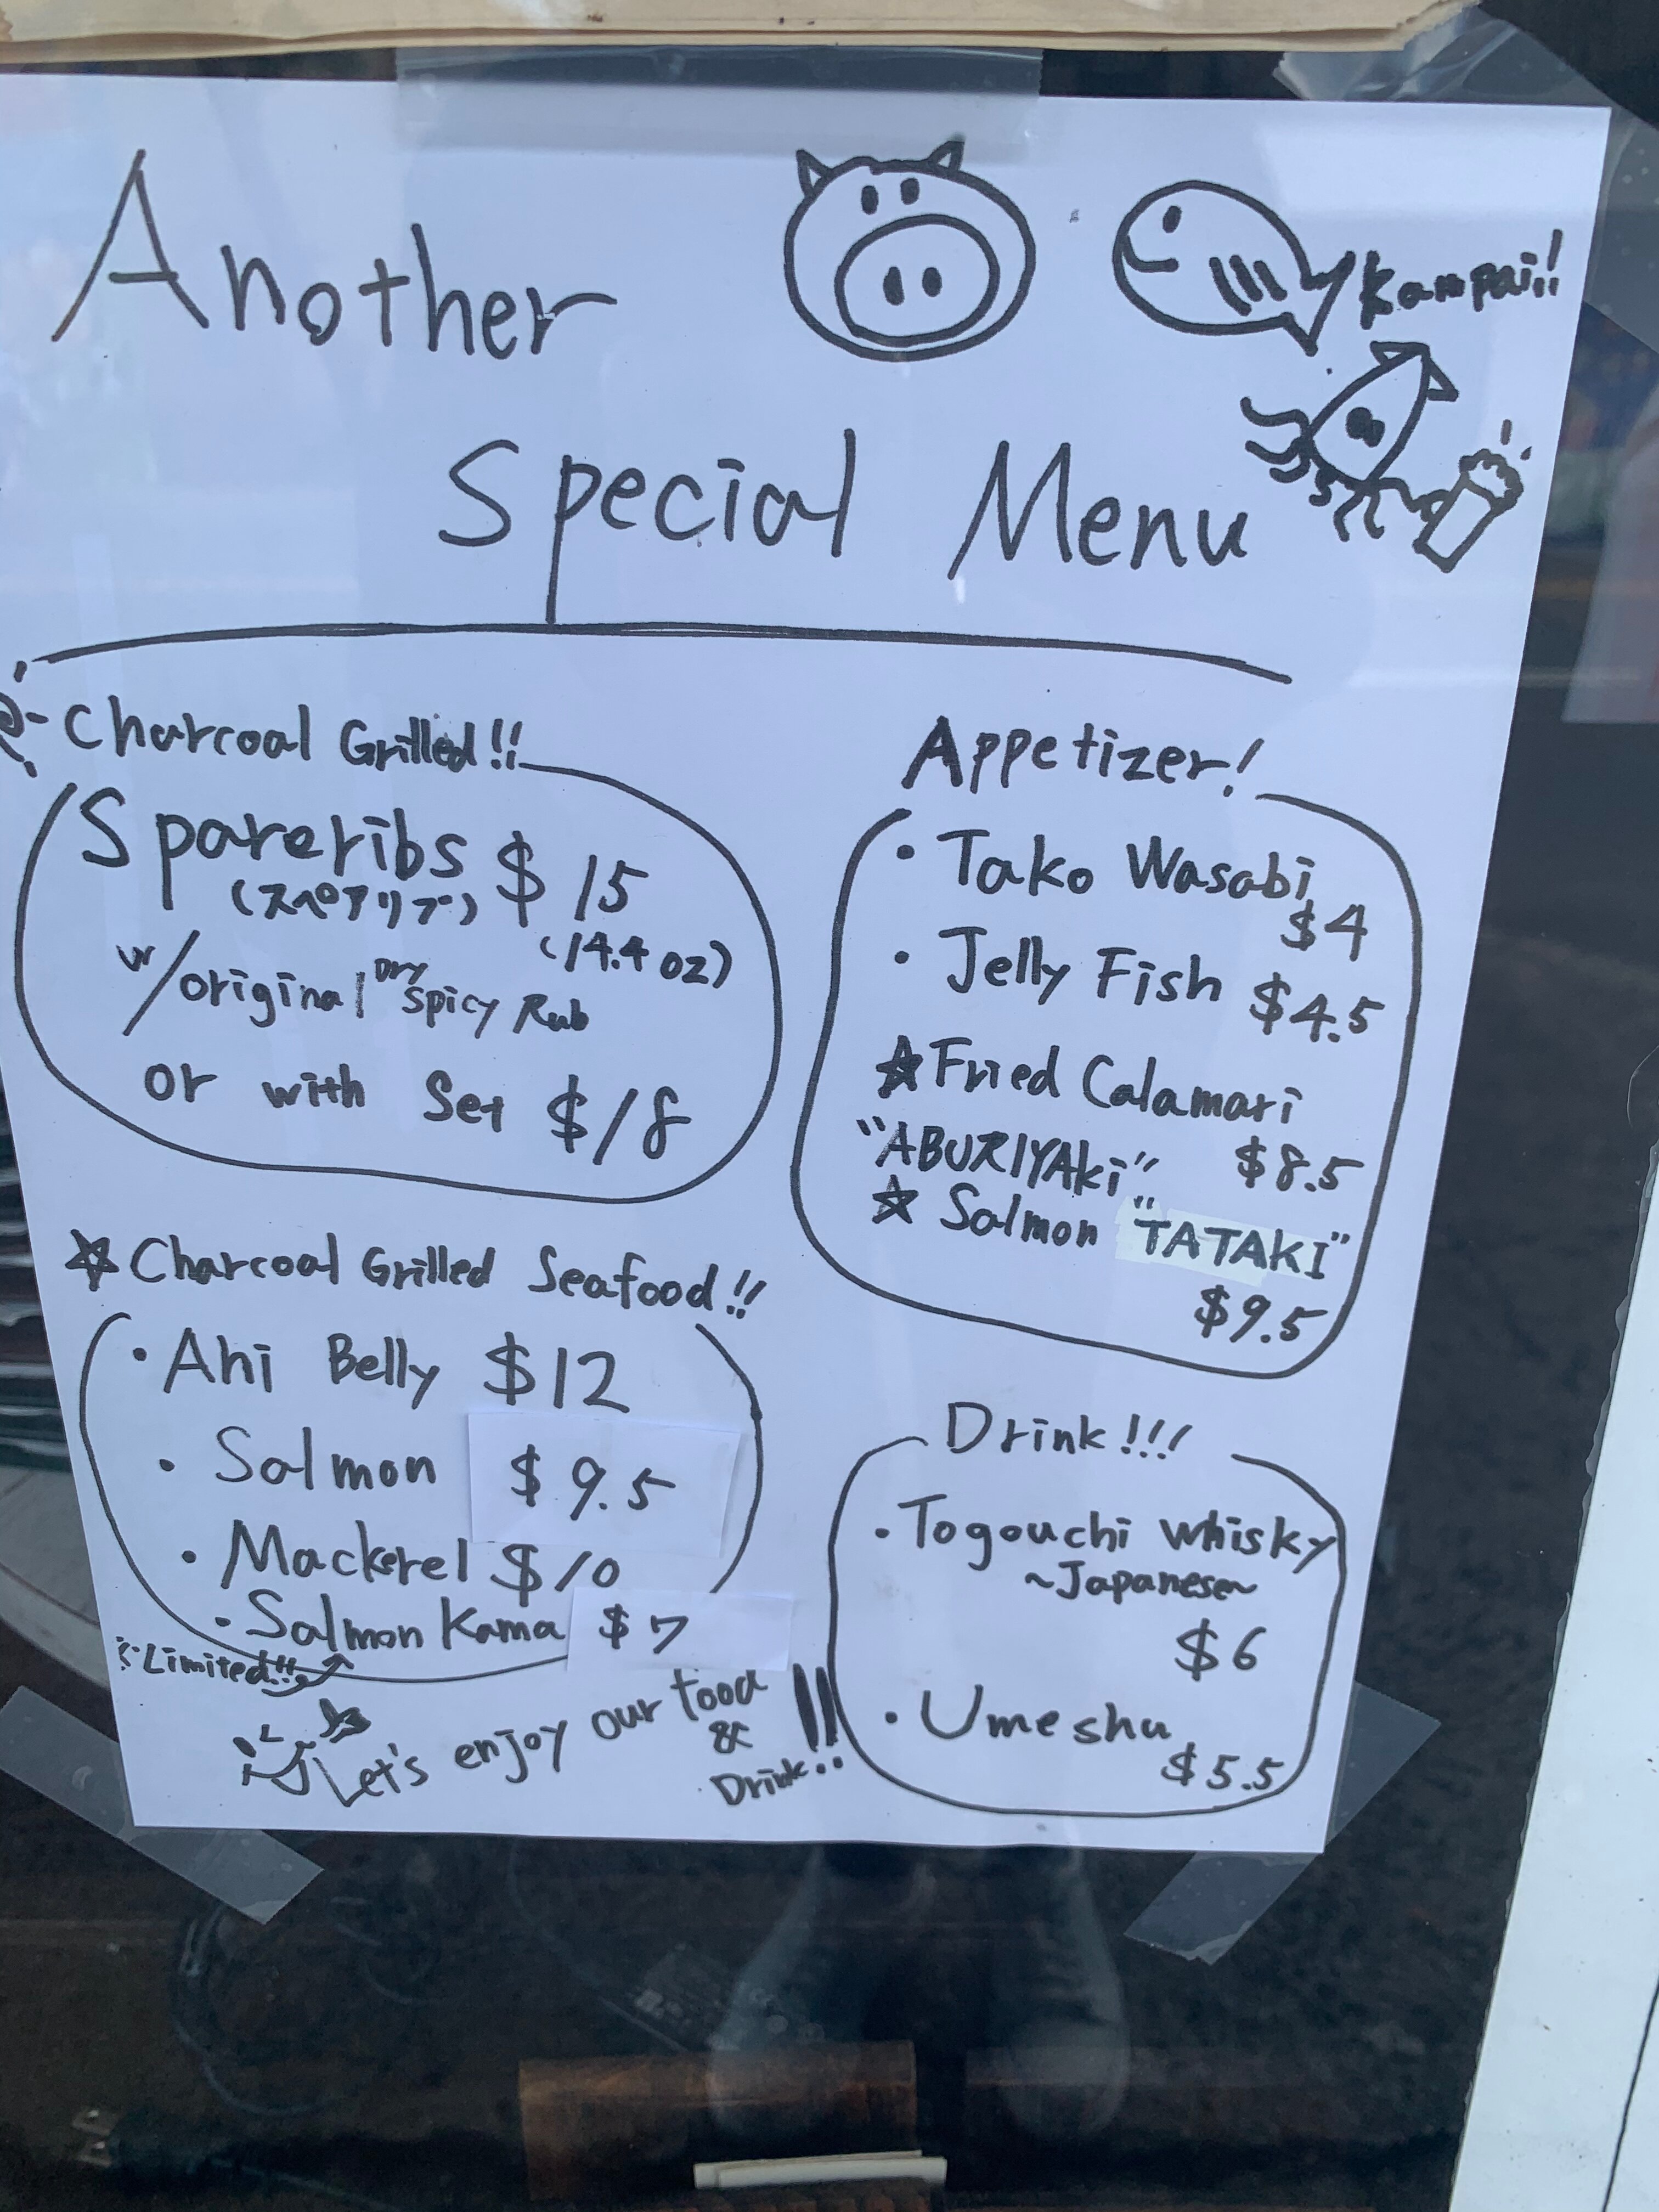 Another
Kampai!!
Special Menu
Charcoal Grilled!!
Spareribs $15
(スペアリブ)
(14.4 oz)
w/original Dry Spicy Rub
or with Set $18
☆ Charcoal Grilled Seafood!!
・Ahi Belly $12
・Salmon $9.5
・Mackerel $10
・Salmon Kama $7
Limited!!
Let's enjoy our food
&
Drink!!
Appetizer!
・Tako Wasabi
$4
・Jelly Fish $4.5
☆Fried Calamari
"ABURIYAki" $8.5
☆ Salmon "TATAKI"
$9.5
Drink!!!
・Togouchi whisky
~Japanese~
$6
・Umeshu
$5.5